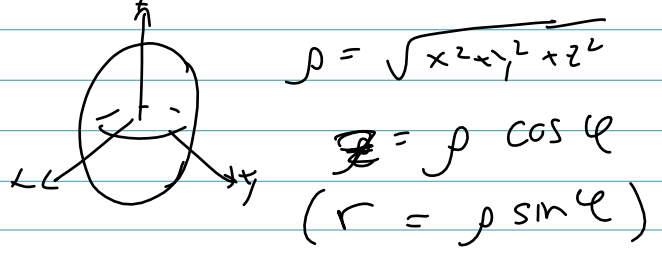 z
x
y
ρ = √x²+y²+z²
z = ρ cos φ
(r = ρ sin φ)